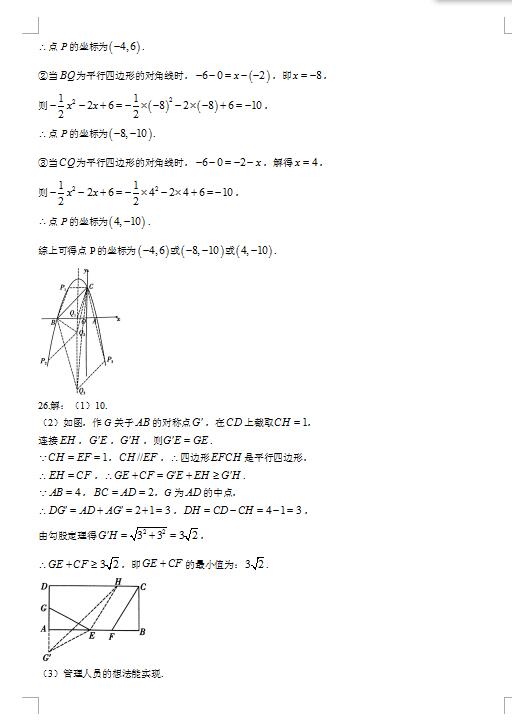 ∴点 P 的坐标为(−4,6).
②当BQ为平行四边形的对角线时，−6−0=x−(−2)，即x=−8，
则−1/2x²−2x+6=−1/2×(−8)²−2×(−8)+6=−10，
∴点 P 的坐标为(−8,−10).
③当CQ为平行四边形的对角线时，−6−0=−2−x，解得x=4，
则−1/2x²−2x+6=−1/2×4²−2×4+6=−10，
∴点 P 的坐标为(4,−10).
综上可得点 P 的坐标为(−4,6)或(−8,−10)或(4,−10).
y
P₁ C
B Q₁ A x
Q₂
P₂ P₃
Q₃
26.解：（1）10.
（2）如图，作G关于AB的对称点G′，在CD上截取CH=1，
连接EH，G′E，G′H，则G′E=GE.
∵CH=EF=1，CH//EF，∴四边形EFCH是平行四边形，
∴EH=CF，∴GE+CF=G′E+EH≥G′H.
∵AB=4，BC=AD=2，G为AD的中点，
∴DG′=AD+AG′=2+1=3，DH=CD−CH=4−1=3，
由勾股定理得G′H=√(3²+3²)=3√2，
∴GE+CF≥3√2，即GE+CF的最小值为：3√2.
D H C
G
A E F B
G′
（3）管理人员的想法能实现.